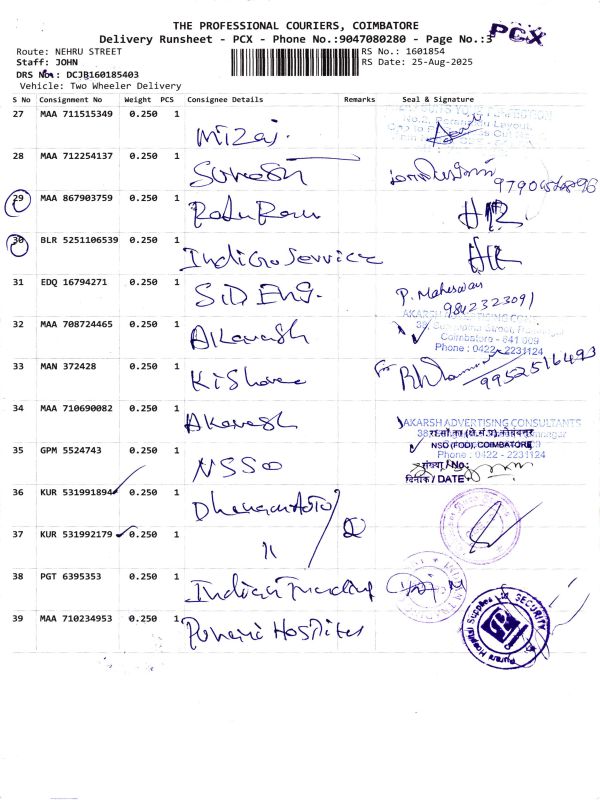 THE PROFESSIONAL COURIERS, COIMBATORE
Delivery Runsheet - PCX - Phone No.:9047080280 - Page No.:3
PCX
Route: NEHRU STREET
RS No.: 1601854
Staff: JOHN
RS Date: 25-Aug-2025
DRS No.: DCJB160185403
Vehicle: Two Wheeler Delivery
S No Consignment No Weight PCS Consignee Details Remarks Seal & Signature
27 MAA 711515349 0.250 1 Mizaj.
28 MAA 712254137 0.250 1 Suresh
29 MAA 867903759 0.250 1
30 BLR 5251106539 0.250 1 Indigo Service
31 EDQ 16794271 0.250 1 S.D ENG. P. Maheswari
9842323091
32 MAA 708724465 0.250 1 AKarash
AKARSH ADVERTISING CON
Coimbatore - 641 009
Phone : 0422 - 2231124
33 MAN 372428 0.250 1 Kishore For 9952516493
34 MAA 710690082 0.250 1 AKarash
AKARSH ADVERTISING CONSULTANTS
35 GPM 5524743 0.250 1 NSSO
NSO (FOD), COIMBATORE
Phone : 0422 - 2231124
संख्या / No:
दिनांक / DATE
36 KUR 531991894 0.250 1
37 KUR 531992179 0.250 1 "
38 PGT 6395353 0.250 1 Indian Trading
39 MAA 710234953 0.250 1 Purani Hospital
Purani Hospital Supplies SECURITY